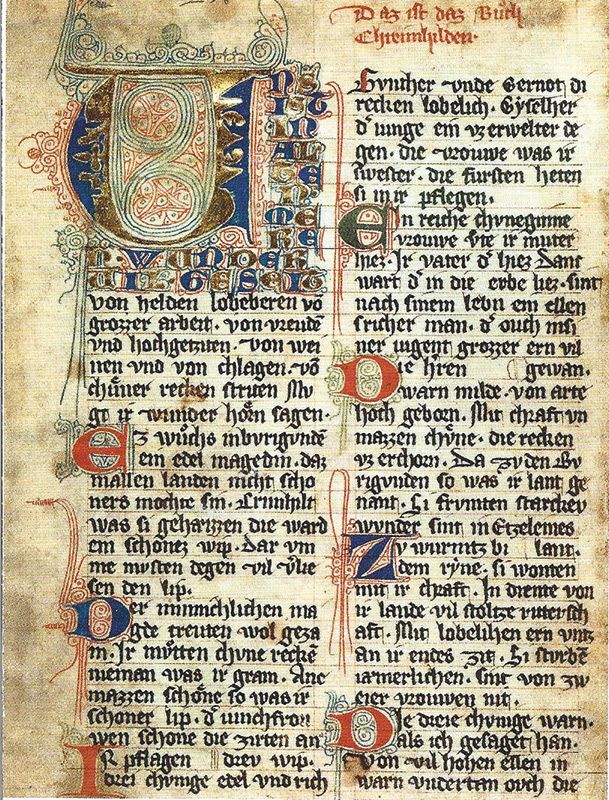 Daz ist daz Buͦch
Chreimhilden·
UNS
IST
IN
AL
TE
N
ME
RE
N· WUNDER
VIL GESEIT
von helden lobeberen võ
grozzer arbeit· von vreude
vnd hochgeziten· von wei
nen vnd von chlagen· võ
chuͤner recken striten Mv
gt ir wunder hoͤrn sagen·
Ez wuͦchs inburigundē
ein edel magedin. daz
in allen landen nicht scho
ners mochte sin. Crimhilt
was si geheizzen die ward
ein schonez wip. Dar vm
me mvsten degen vil vlie
sen den lip.
Der minnichlichen ma
gde treuten wol geza
m. Ir mvtten chvne reckē
nieman was ir gram. Ane
mazzen schoͤne so was ir
schoner lip. dˀ iunchfrou
wen schone die zirten an
Ir pflagen drey wip.
drei chvnige edel vnd rich
Gvnther vnde Gernot di
recken lobelich. Gyselher
dˀ iunge ein vz erwelter de
gen. die vrouwe was ir
swester. die fursten heten
si in ir pflegen.
Ein reiche chvneginne
vrouwe Vte ir muter
hiez. Ir vater dˀ hiez Danc
wart dˀ in die erbe liez. sint
nach sinem lebn ein ellen
sricher man. dˀ ouch insi
ner iugent grozzer ern vil
gewan.
Die hˀren
warn milde. von arte
hoch geborn. Mit chraft vn
mazzen chvͤne. die recken
vz erchorn. Da zv den Bv
rigvnden so was ir lant ge
nant. Si frvmten starckev
wvnder sint in Etzelenes
lant.
Zv wurmtz bi
dem ryne. si wonten
mit ir chraft. In diente von
ir lande vil stoltze rittersch
aft. Mit lobelihen ern vntz
an ir endes zit. Si sturbē
iamerlichen. sint von zw
eier vrouwen nit.
Die dreie chvnige warn.
als ich gesaget han.
Von vil hohen ellen in
warn vndertan ovch die